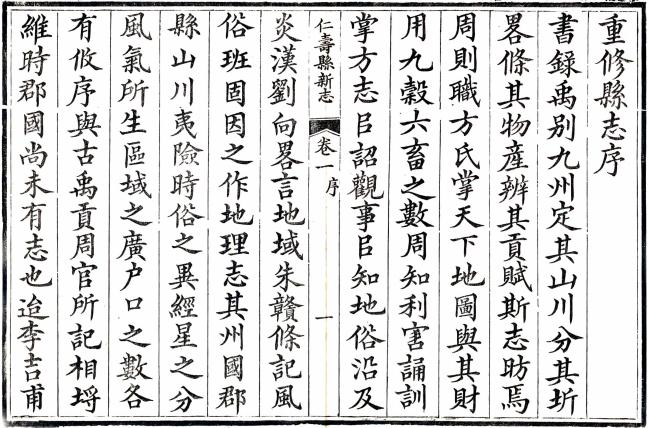 重修縣志序
書錄禹別九州定其山川分其圻
畧條其物產辨其貢賦斯志昉焉
周則職方氏掌天下地圖與其財
用九穀六畜之數周知利害誦訓
掌方志㠯詔觀事㠯知地俗沿及
仁壽縣新志 卷一 序 一
炎漢劉向畧言地域朱贛條記風
俗班固因之作地理志其州國郡
縣山川夷險時俗之異經星之分
風氣所生區域之廣户口之數各
有攸序與古禹貢周官所記相埒
維時郡國尚未有志也迨李吉甫